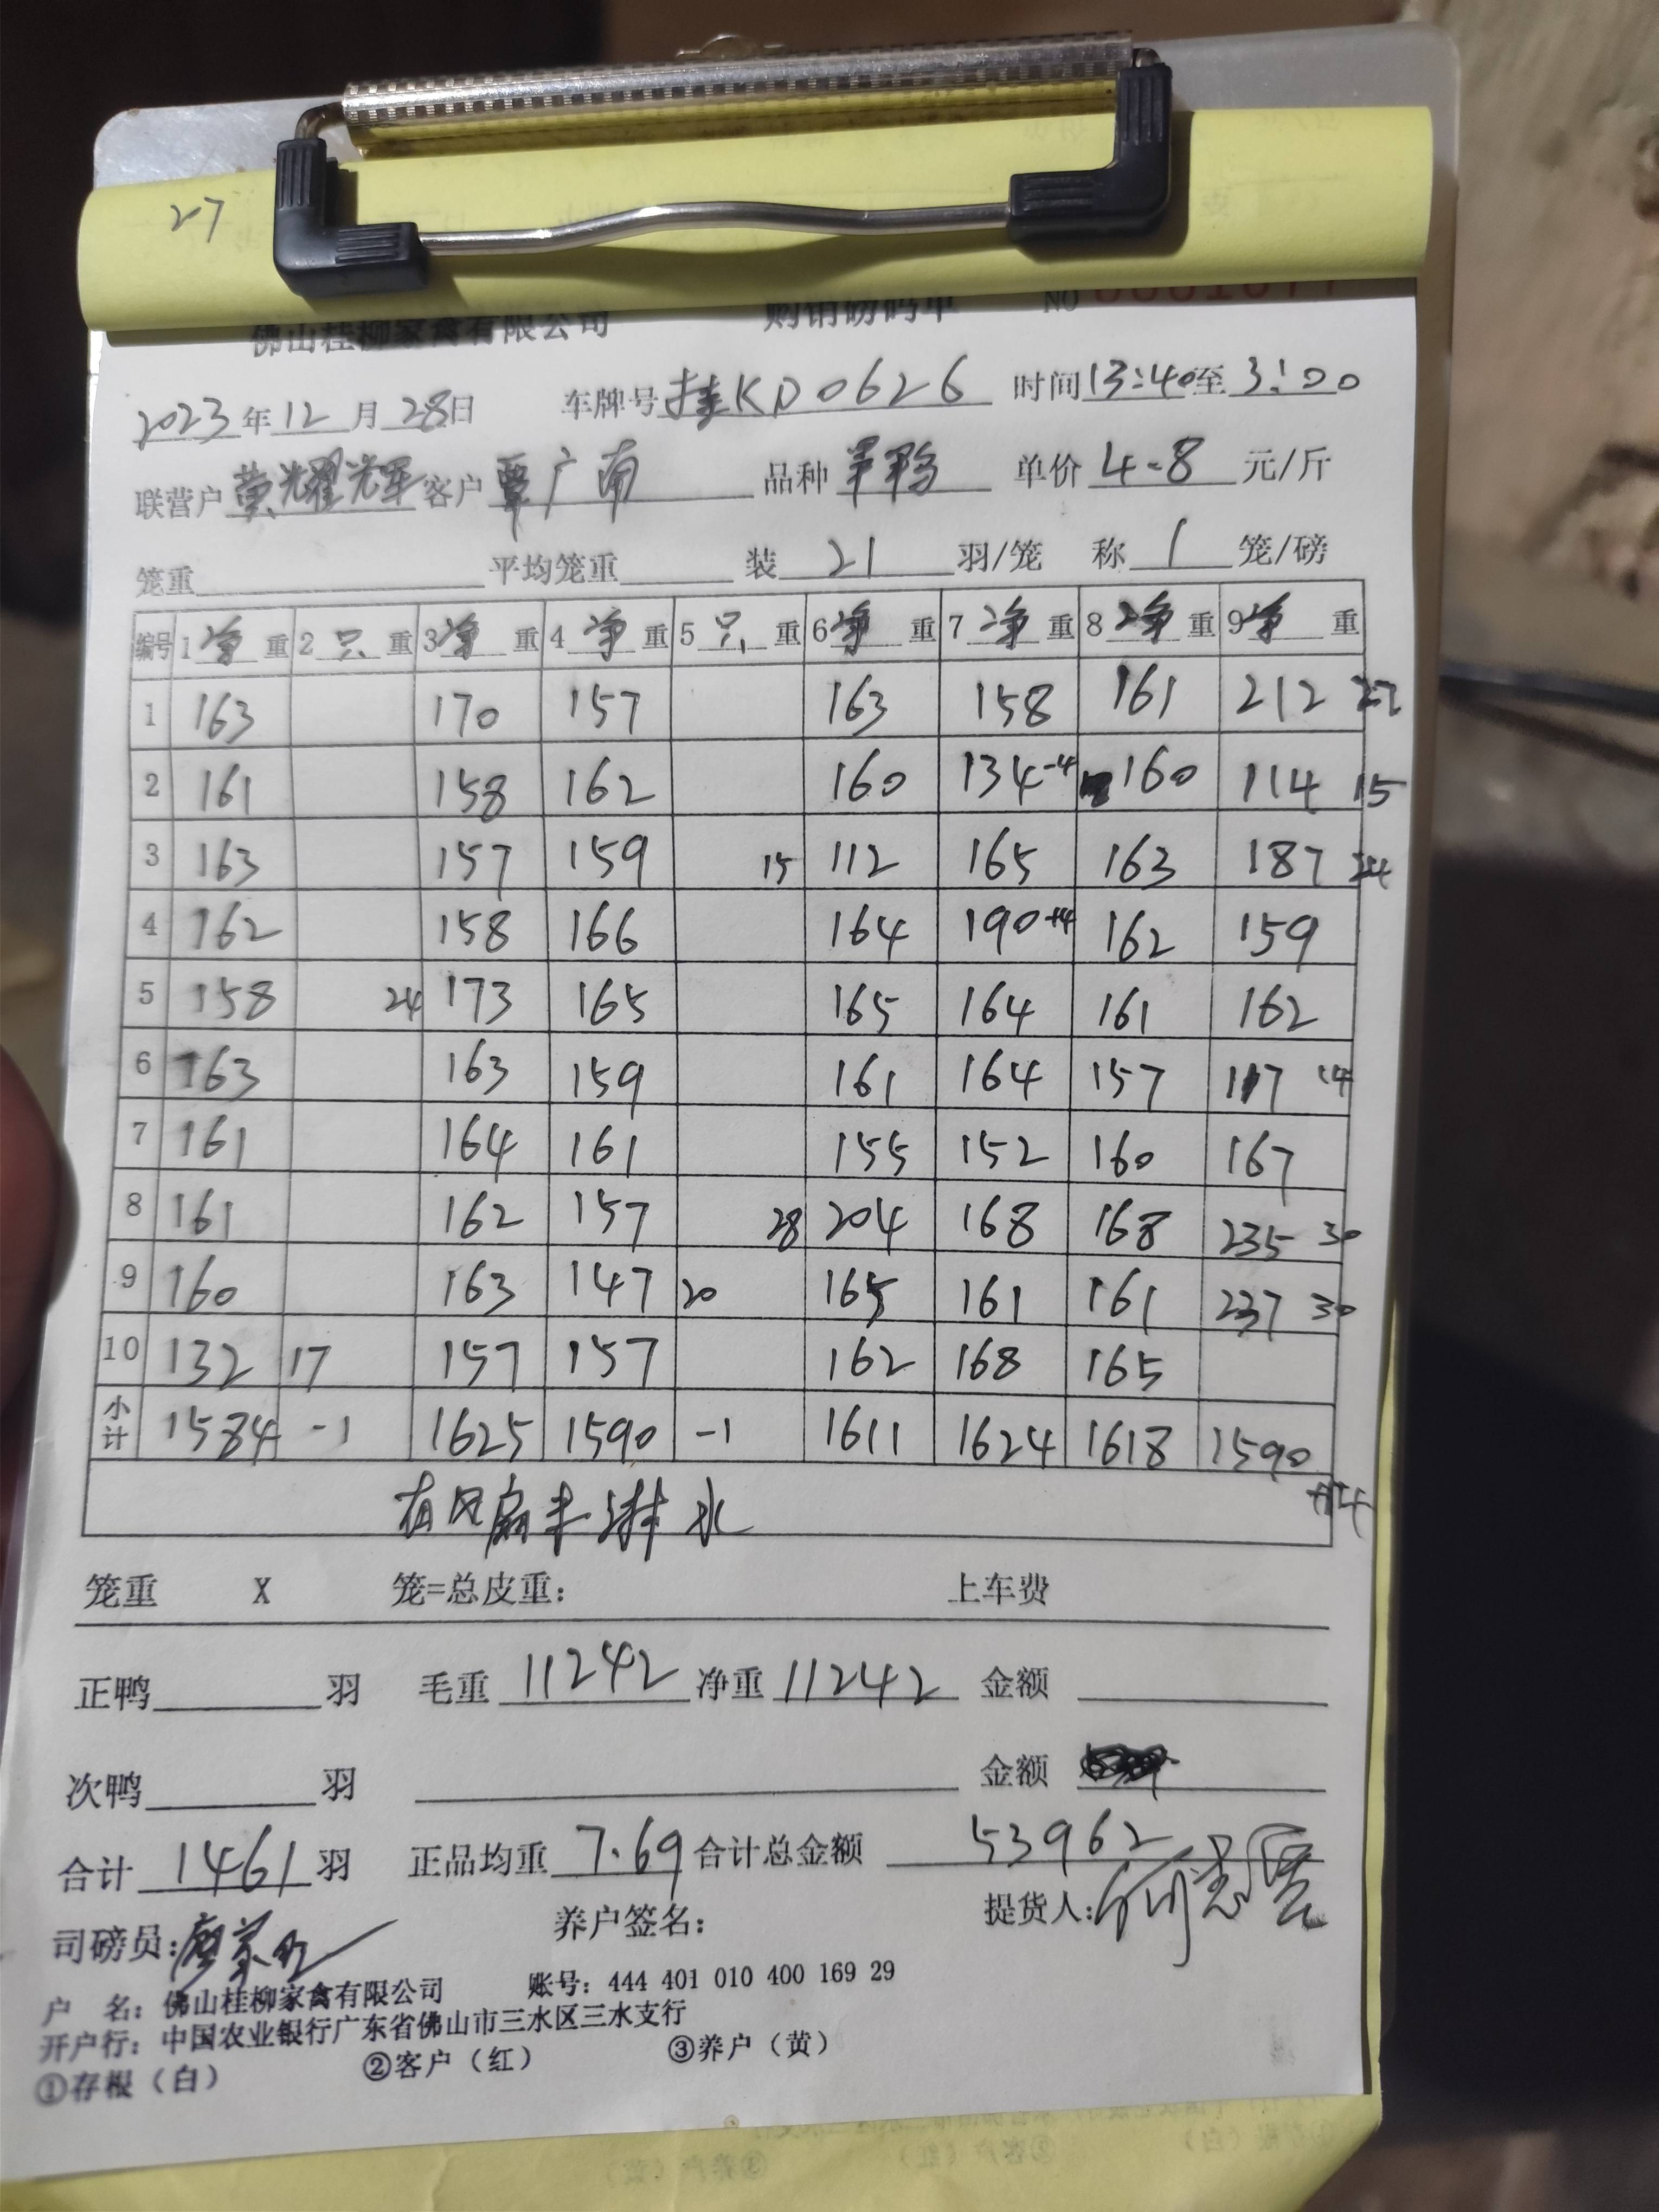 27
佛山桂柳家禽有限公司 购销磅码单 NO 0001077
2023年12月28日 车牌号桂KD0626 时间13:40至3:00
联营户 耀辉 客户覃广南 品种 单价4-8元/斤
笼重 平均笼重 装21羽/笼 称1笼/磅
编号 1净重 2只重 3净重 4净重 5只重 6净重 7净重 8净重 9净重
1 163 170 157 163 158 161 212 27
2 161 158 162 160 134-4 160 114 15
3 163 157 159 15 112 165 163 187 24
4 162 158 166 164 190+4 162 159
5 158 24 173 165 165 164 161 162
6 163 163 159 161 164 157 117 14
7 161 164 161 155 152 160 167
8 161 162 157 28 204 168 168 235 30
9 160 163 147 20 165 161 161 237 30
10 132 17 157 157 162 168 165
小计 1584 -1 1625 1590 -1 1611 1624 1618 1590
有风扇未淋水
笼重 X 笼=总皮重: 上车费
正鸭 羽 毛重 11242 净重 11242 金额
次鸭 羽 金额
合计 1461 羽 正品均重 7.69 合计总金额 53962
司磅员: 养户签名: 提货人:
户 名: 佛山桂柳家禽有限公司 账号: 444 401 010 400 169 29
开户行: 中国农业银行广东省佛山市三水区三水支行
①存根(白) ②客户(红) ③养户(黄)